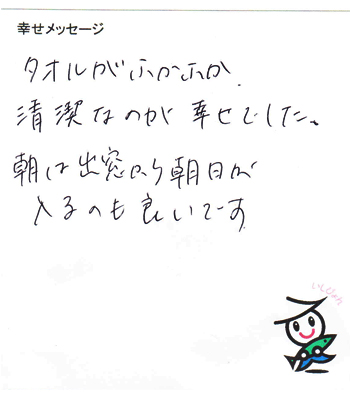 幸せメッセージ
タオルがふかふか
清潔なのが幸せでした。
朝は出窓から朝日が
入るのも良いです